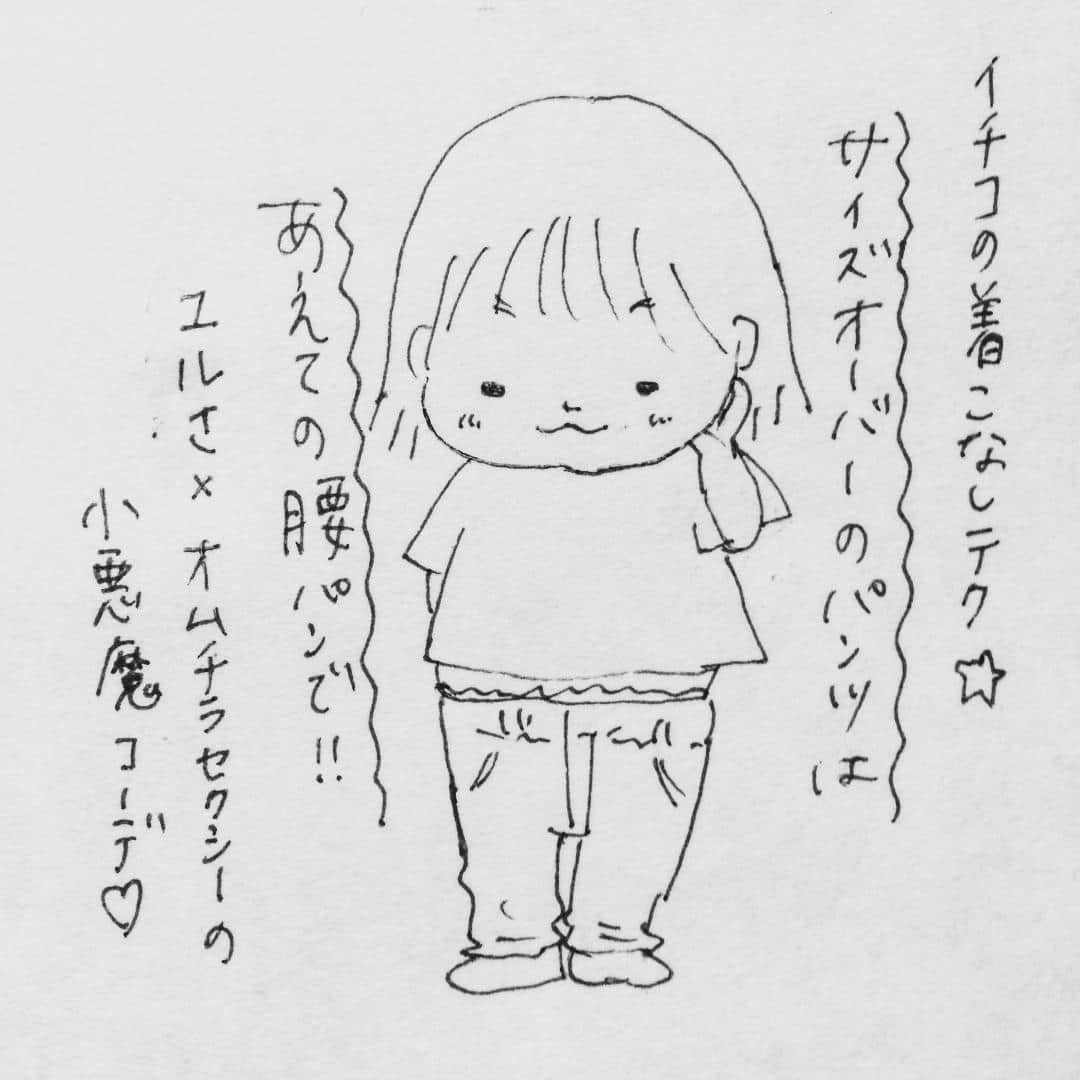 イチコの着こなしテク☆
サイズオーバーのパンツは
あえての腰パンで!!
ユルさ×オムチラセクシーの
小悪魔コーデ♡